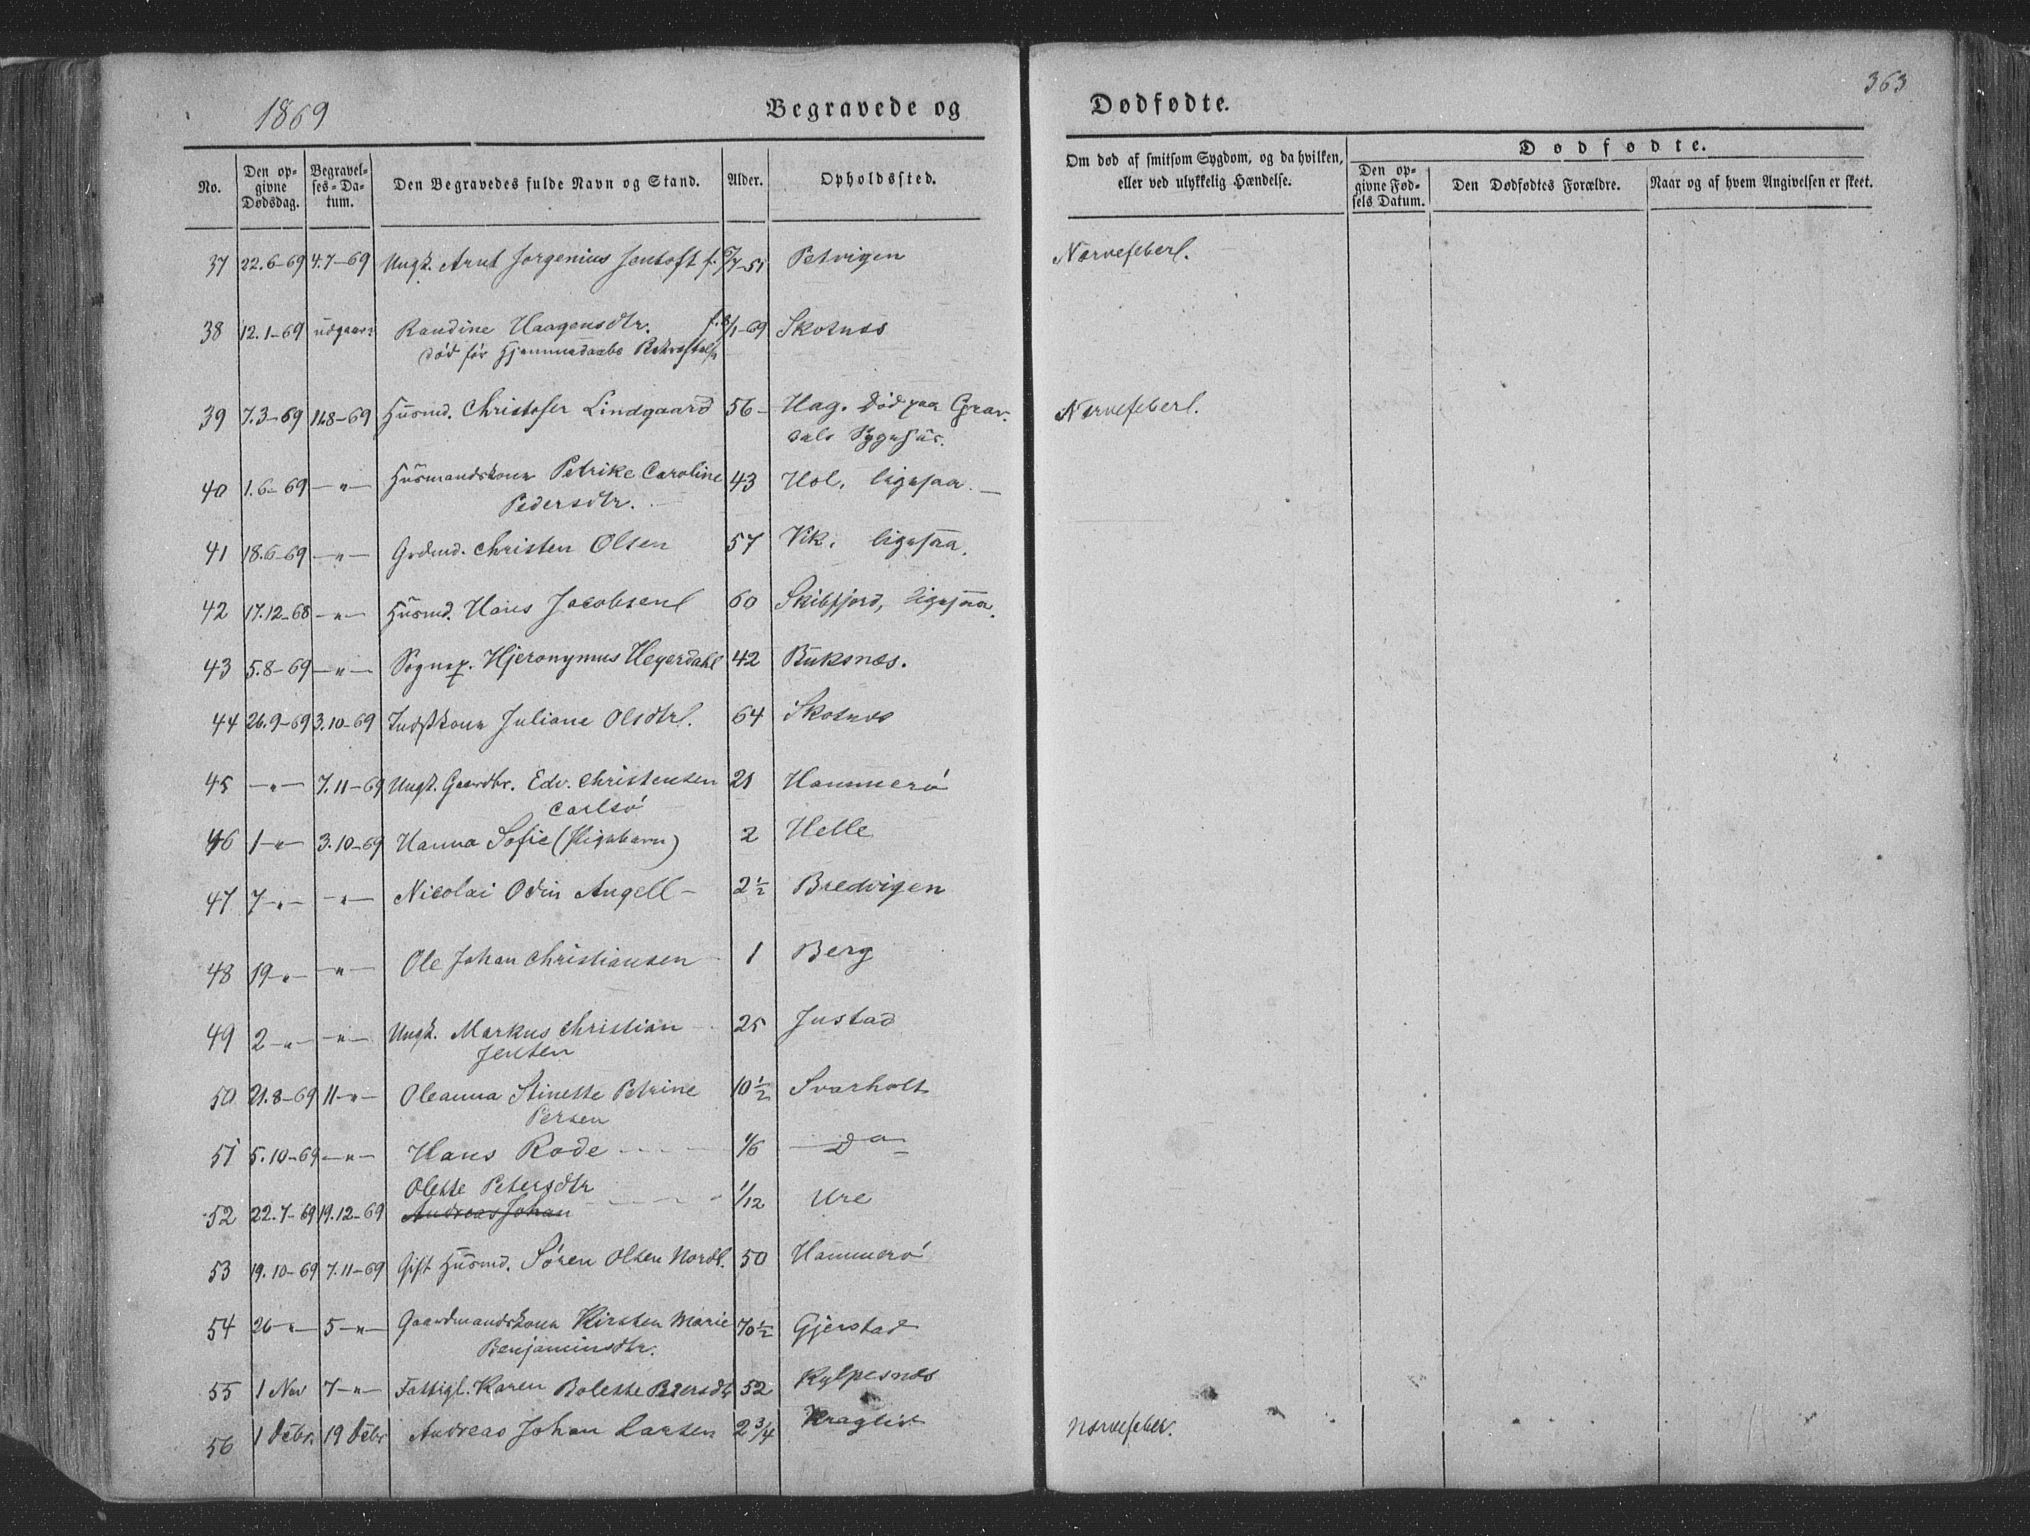 1869 Begravede og Dødfødte. 363
No. Den opgivne Dødsdag. Begravelses-Datum. Den Begravedes fulde Navn og Stand. Alder. Opholdssted. Om død af smitsom Sygdom, og da hvilken, eller ved ulykkelig Hændelse. Dødfødte.
Den opgivne Fødsels Datum. Den Dødfødtes Forældre. Naar og af hvem Angivelsen er skeet.
37 22.6-69 4.7-69 Ungk. Arnt Jørgenius Jentoft f. 6/7-51 Petvigen Nervefeber.
38 12.1-69 udgaar Randine Haagensdtr. f. 8/1-69 Skotnes
død før Hjemmedaabs
39 7.3-69 11.8-69 Husmd. Christofer Lindgaard 56 - Hag. Død paa Grav-
dals Sygehus. Nervefeber.
40 1.6-69 -"- Husmandskone Petrike Caroline 43 Hol, ligesaa. -
Pedersdtr.
41 18.6-69 -"- Grdmd. Christen Olsen 57 Vik, ligesaa.
42 17.12-68 -"- Husmd. Hans Jacobsen 60 Skibfjord, ligesaa.
43 5.8-69 -"- Sognep. Hjeronymus Heyerdahl 42 Buksnes.
44 26.9-69 3.10-69 Indstkone Juliane Olsdtr. 64 Skotnes
45 -"- 7.11-69 Ungk. Gaardbr. Edv. Christensen 21 Hammerø
Carlsø
46 1-"- 3.10-69 Hanna Sofie (Pigebarn) 2 Helle
47 7-"- -"- Nicolai Odin Angell - 2 1/2 Bredvigen
48 19-"- -"- Ole Johan Christiansen 1 Berg
49 2-"- -"- Ungk. Markus Christian 25 Justad
Jensen
50 21.8-69 11-"- Oleanna Stinette Petrine 10 1/2 Svarholt
Persen
51 5.10-69 -"- Hans Rode 1/6 - Do -
Olette Petersdtr
52 22.7-69 19.12-69 Andreas Johan 1/12 Ure
53 19.10-69 7.11-69 Gift Husmd. Søren Olsen Nordl. 50 Hammerø
54 26-"- 5-"- Gaardmandskone Kirsten Marie 70 1/2 Gjerstad
Benjaminsdtr.
55 1 Nov 7-"- Fattigl. Karen Bolette 52 Kylpesnes
56 1 Decbr. 19 Decbr Andreas Johan Larsen 2 3/4 Nervefeber.